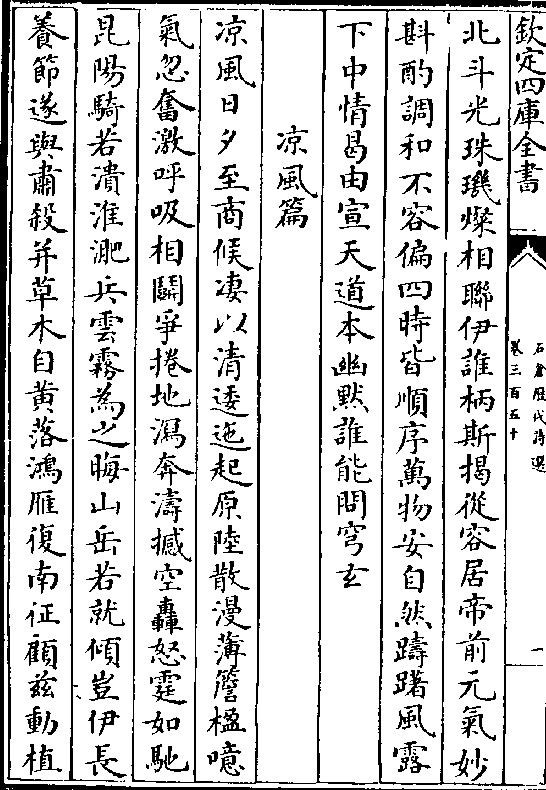 欽定四庫全書
石倉歷代詩選
卷三百五十
一
北斗光珠璣燦相聯伊誰柄斯揭從容居帝前元氣妙
斟酌調和不容偏四時皆順序萬物安自然躊躇風露
下中情曷由宣天道本幽默誰能問穹玄
凉風篇
凉風日夕至商候凄以清逶迤起原陸散漫薄簷楹噫
氣忽奮激呼吸相鬭爭捲地瀉奔濤撼空轟怒霆如馳
昆陽騎若潰淮淝兵雲霧為之晦山岳若就傾豈伊長
養節遂與肅殺并草木自黄落鴻雁復南征顧兹動植